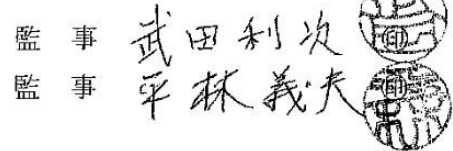 監事 武田利次 ㊞
監事 平林義夫 ㊞